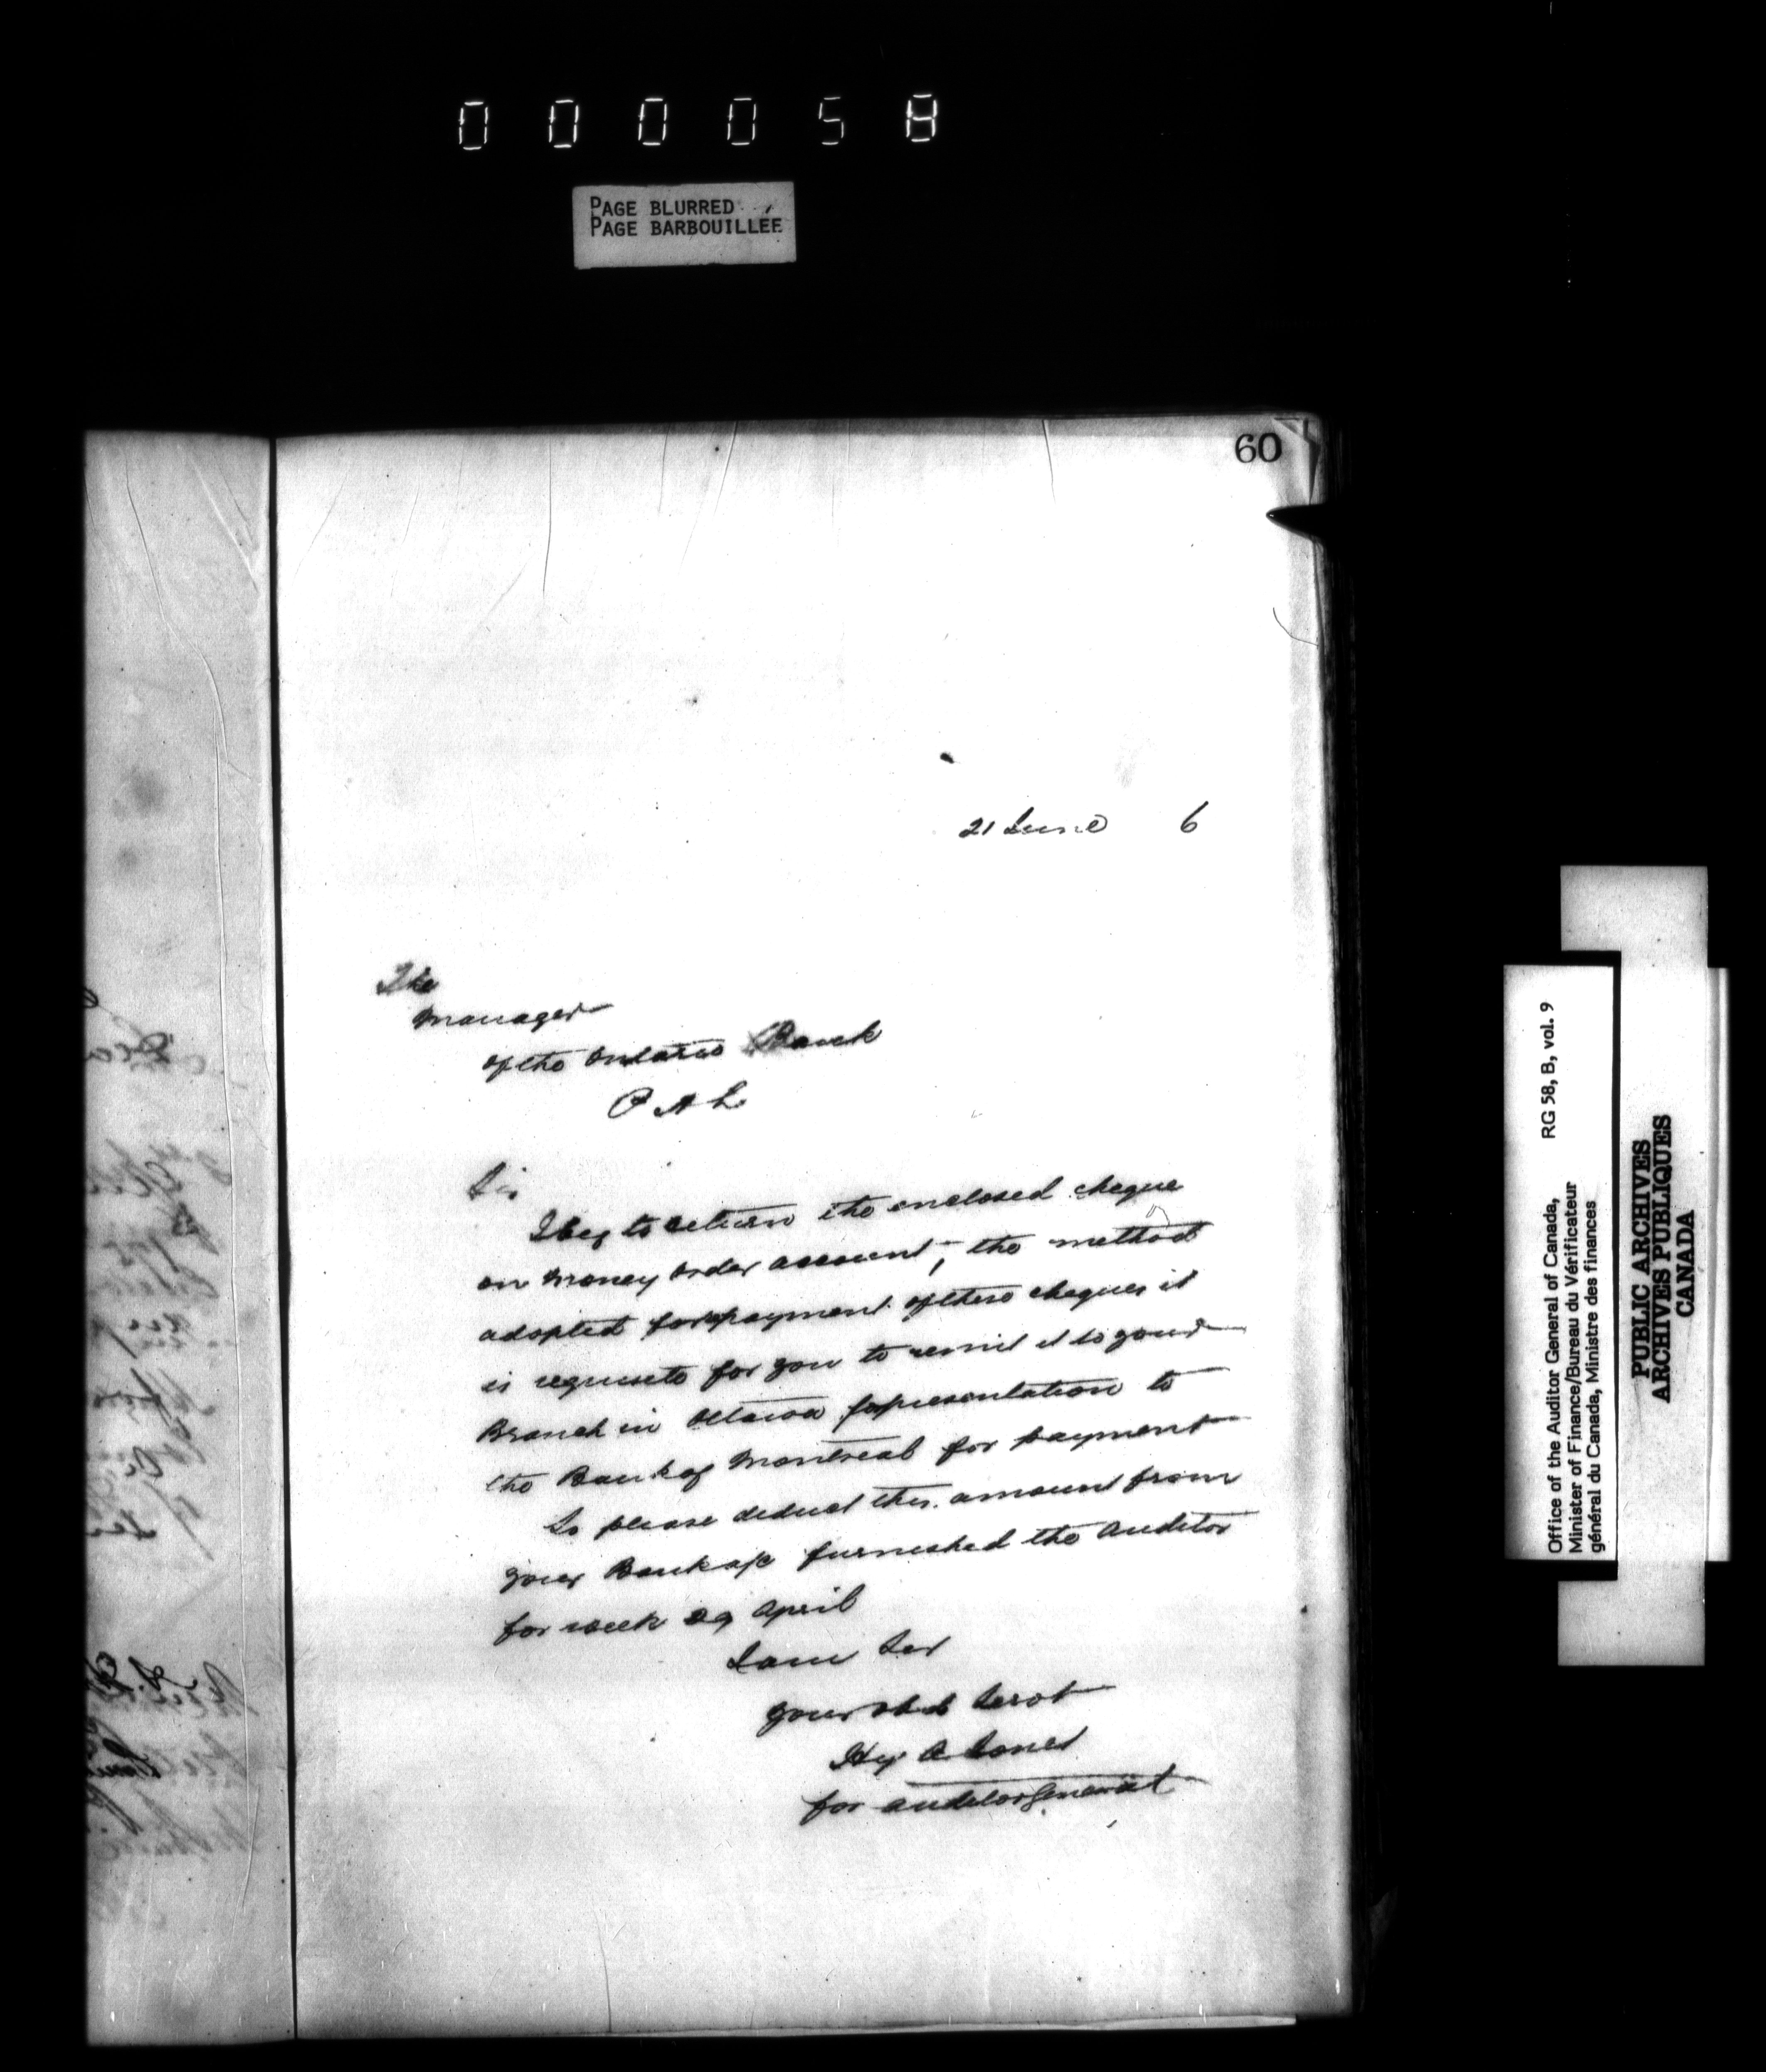 000058
PAGE BLURRED
PAGE BARBOUILLÉE
60
21 June 6
The
Manager
of the Ontario Bank
P A L
Sir
I beg to return the enclosed cheque
on Money Order account, the method
adopted for payment of these cheques it
is requisite for you to remit it to your
Branch in Ottawa for presentation to
the Bank of Montreal for payment
So please deduct this amount from
your Bank a/c furnished the Auditor
for week 29 April
I am Sir
your Obd Servt
Hy A Jones
for Auditor General
Office of the Auditor General of Canada, RG 58, B, vol. 9
Minister of Finance/Bureau du Vérificateur
général du Canada, Ministre des finances
PUBLIC ARCHIVES
ARCHIVES PUBLIQUES
CANADA